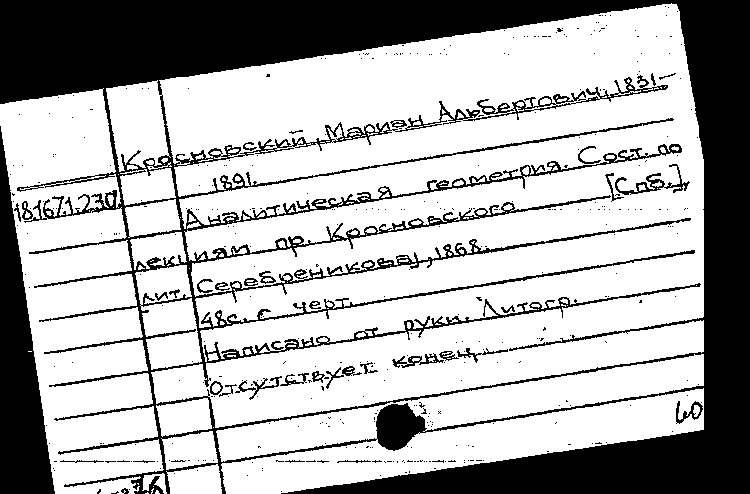 Кросновский, Мариан Альбертович, 1831-
1891.
18.167.1.230.
Аналитическая геометрия. Сост. по
лекциям пр. Кросновского [Спб.],
лит. Серебрениковой, 1868.
48с. с черт.
Написано от руки. Литогр.
Отсутствует конец.
60